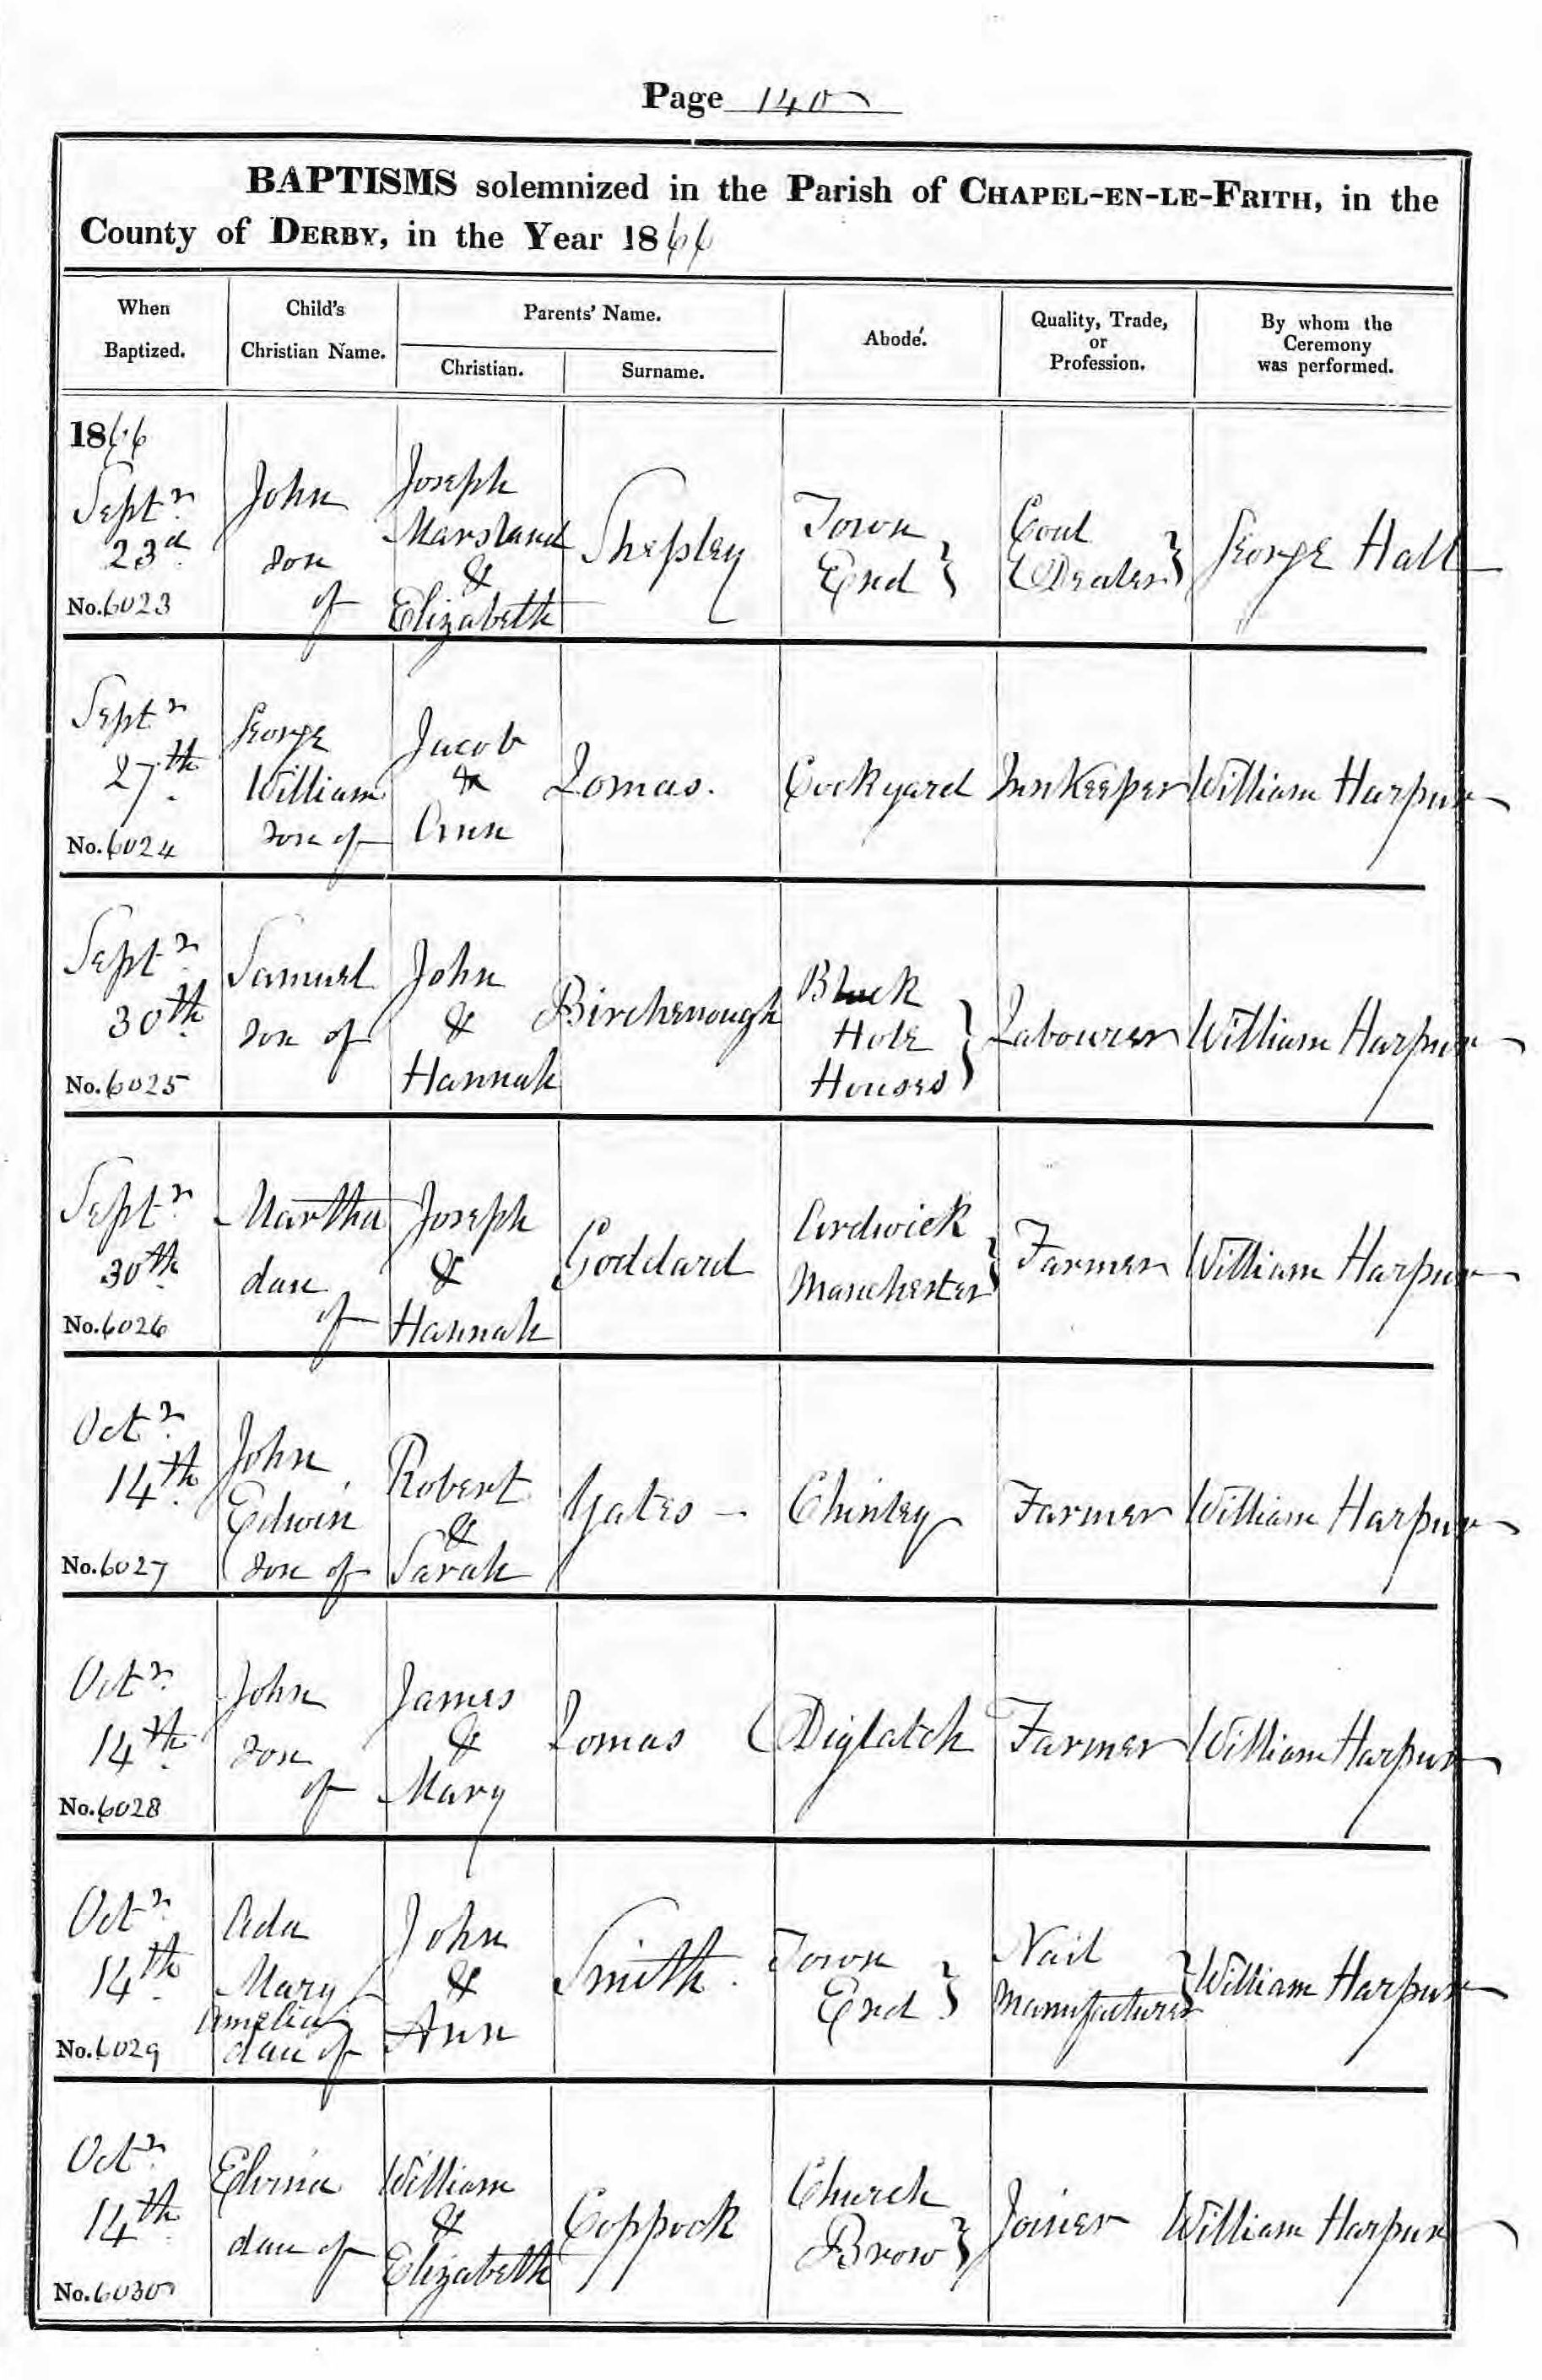 Page 140
BAPTISMS solemnized in the Parish of CHAPEL-EN-LE-FRITH, in the
County of DERBY, in the Year 1866
When Baptized.
Child's Christian Name.
Parents' Name.
Christian.
Surname.
Abode.
Quality, Trade, or Profession.
By whom the Ceremony was performed.
1866
Septr 23d
No. 6023
John son of
Joseph Marsland & Elizabeth
Shepley
Town End
Coal Dealer
George Hall
Septr 27th
No. 6024
George William son of
Jacob & Ann
Lomas.
Cockyard
Innkeeper
William Harpur
Septr 30th
No. 6025
Samuel son of
John & Hannah
Birchenough
Black Hole Houses
Labourer
William Harpur
Septr 30th
No. 6026
Martha dau of
Joseph & Hannah
Goddard
Ardwick Manchester
Farmer
William Harpur
Octr 14th
No. 6027
John Edwin son of
Robert & Sarah
Yates -
Chinley
Farmer
William Harpur
Octr 14th
No. 6028
John son of
James & Mary
Lomas
Diglatch
Farmer
William Harpur
Octr 14th
No. 6029
Ada Mary Amelia dau of
John & Ann
Smith.
Town End
Nail Manufacturer
William Harpur
Octr 14th
No. 6030
Elvina dau of
William & Elizabeth
Coppock
Church Brow
Joiner
William Harpur